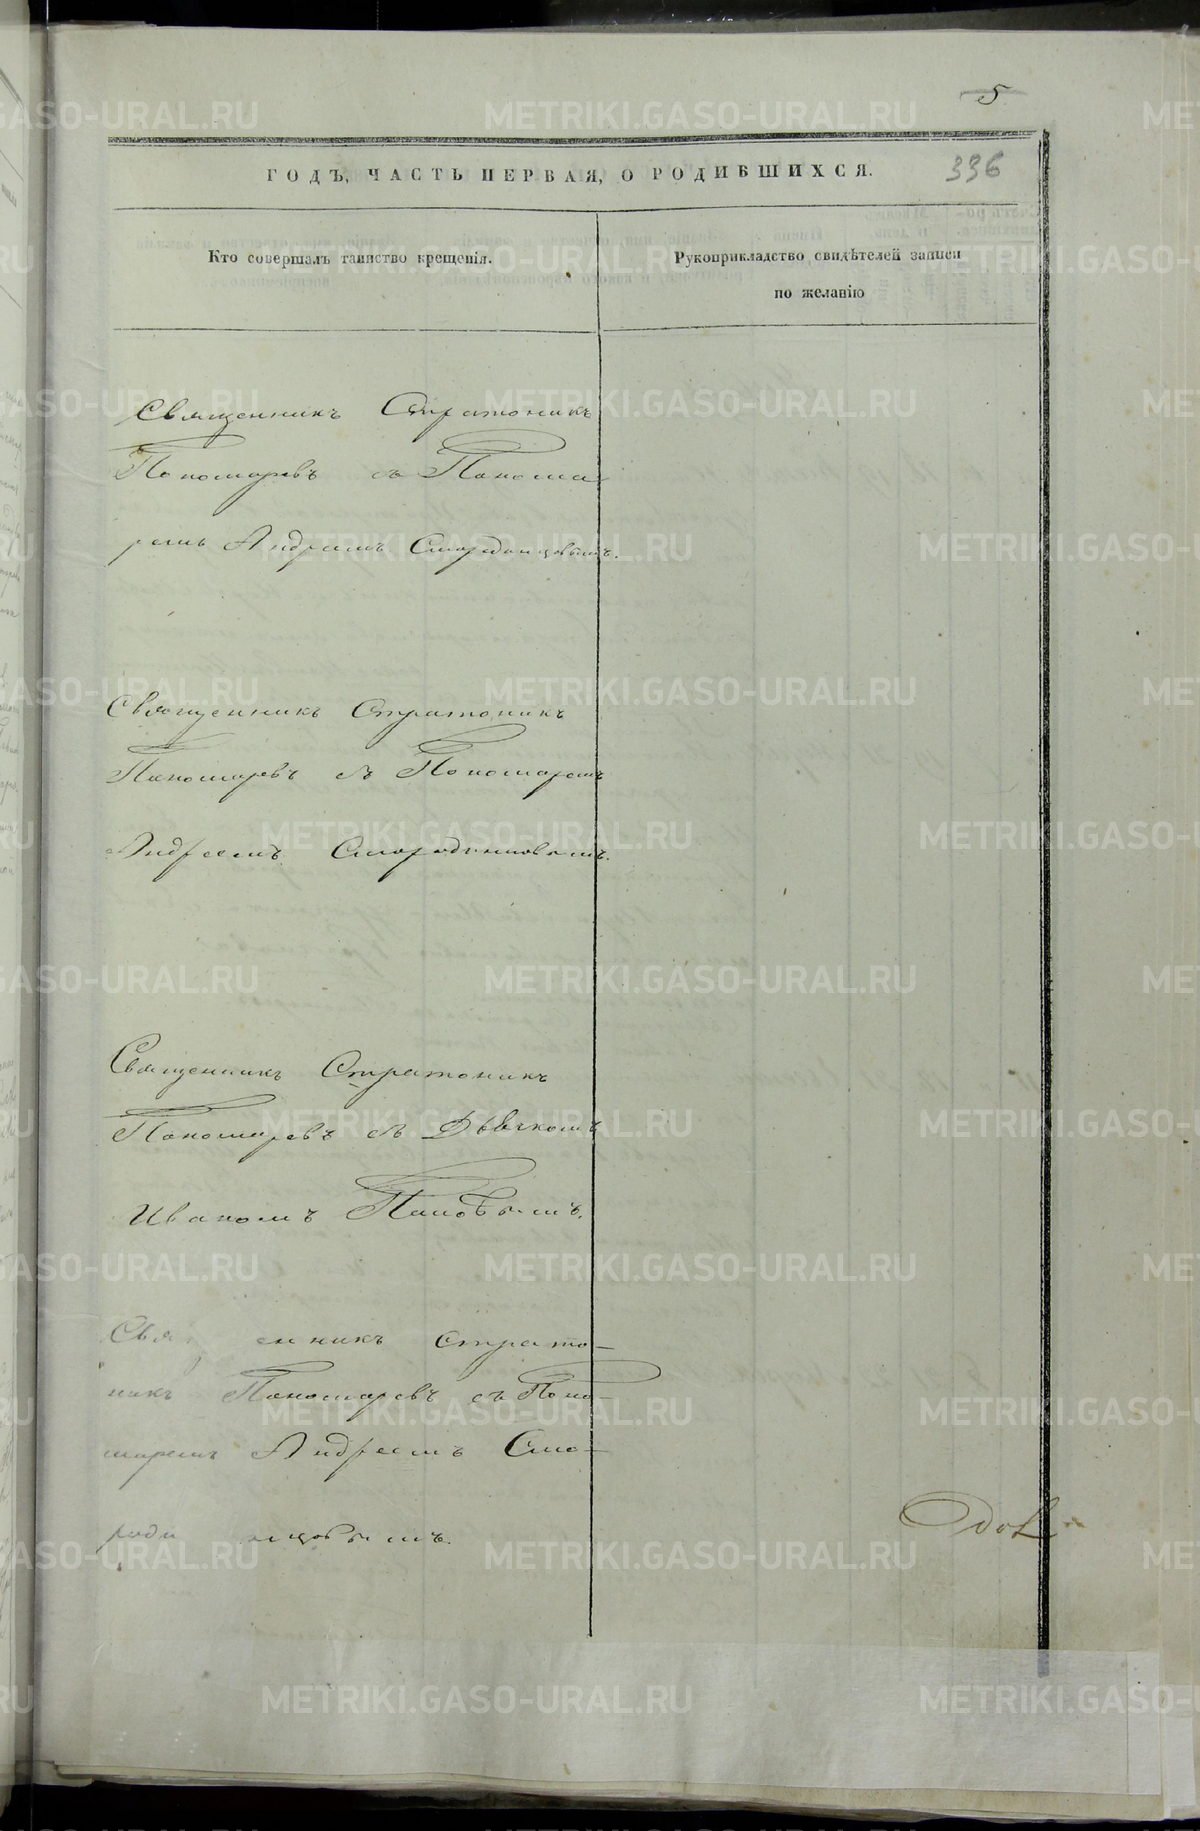 5
336
ГОДЪ, ЧАСТЬ ПЕРВАЯ, О РОДИВШИХСЯ.
Кто совершалъ таинство крещенія.
Рукоприкладство свидѣтелей записи
по желанію
Священникъ Стратоникъ
Пономаревъ съ Понома-
ремъ Андреемъ Смородинцовымъ.
Священникъ Стратоникъ
Пономаревъ съ Пономаремъ
Андреемъ Смородинцовымъ.
Священникъ Стратоникъ
Пономаревъ съ Дьячкомъ
Иваномъ Поповымъ.
Свя енникъ Страто-
никъ Пономаревъ съ Поно-
маремъ Андреемъ Смо-
роди нцовымъ.
METRIKI.GASO-URAL.RU